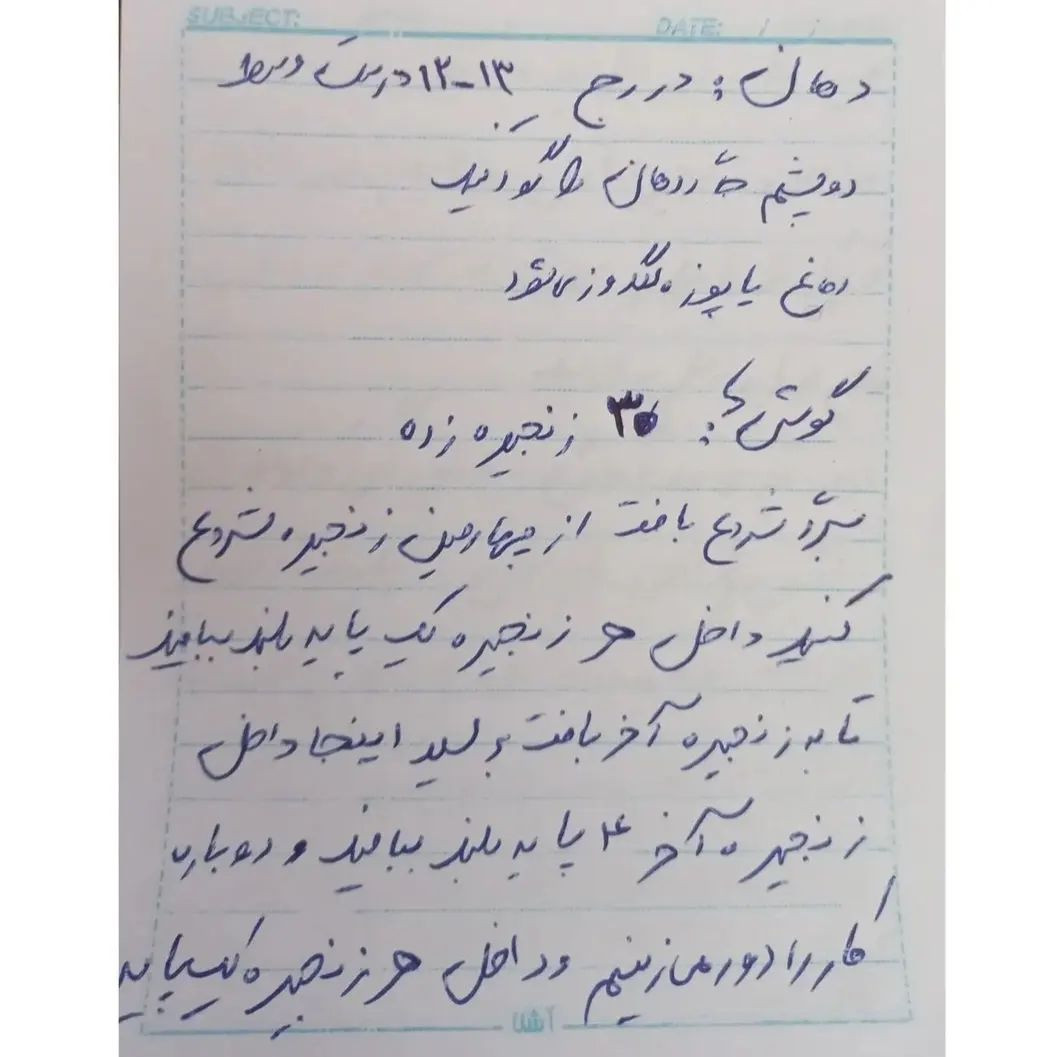 SUBJECT:
DATE: / /
دهان: در رج ۱۳-۱۲ درست وسط
دو چشم جا دهان را گود کنید
دماغ یا پوزه گلدوزی شود
گوش ها: ۳۵ زنجیره زده
سپس شروع بافت از چهارمین زنجیره شروع
کنید داخل هر زنجیره یک پایه بلند ببافید
تا به زنجیره آخر بافت برسید اینجا داخل
زنجیره آخر ۴ پایه بلند ببافید و دوباره
کار را دور می زنیم و داخل هر زنجیره یک پایه
آشنا